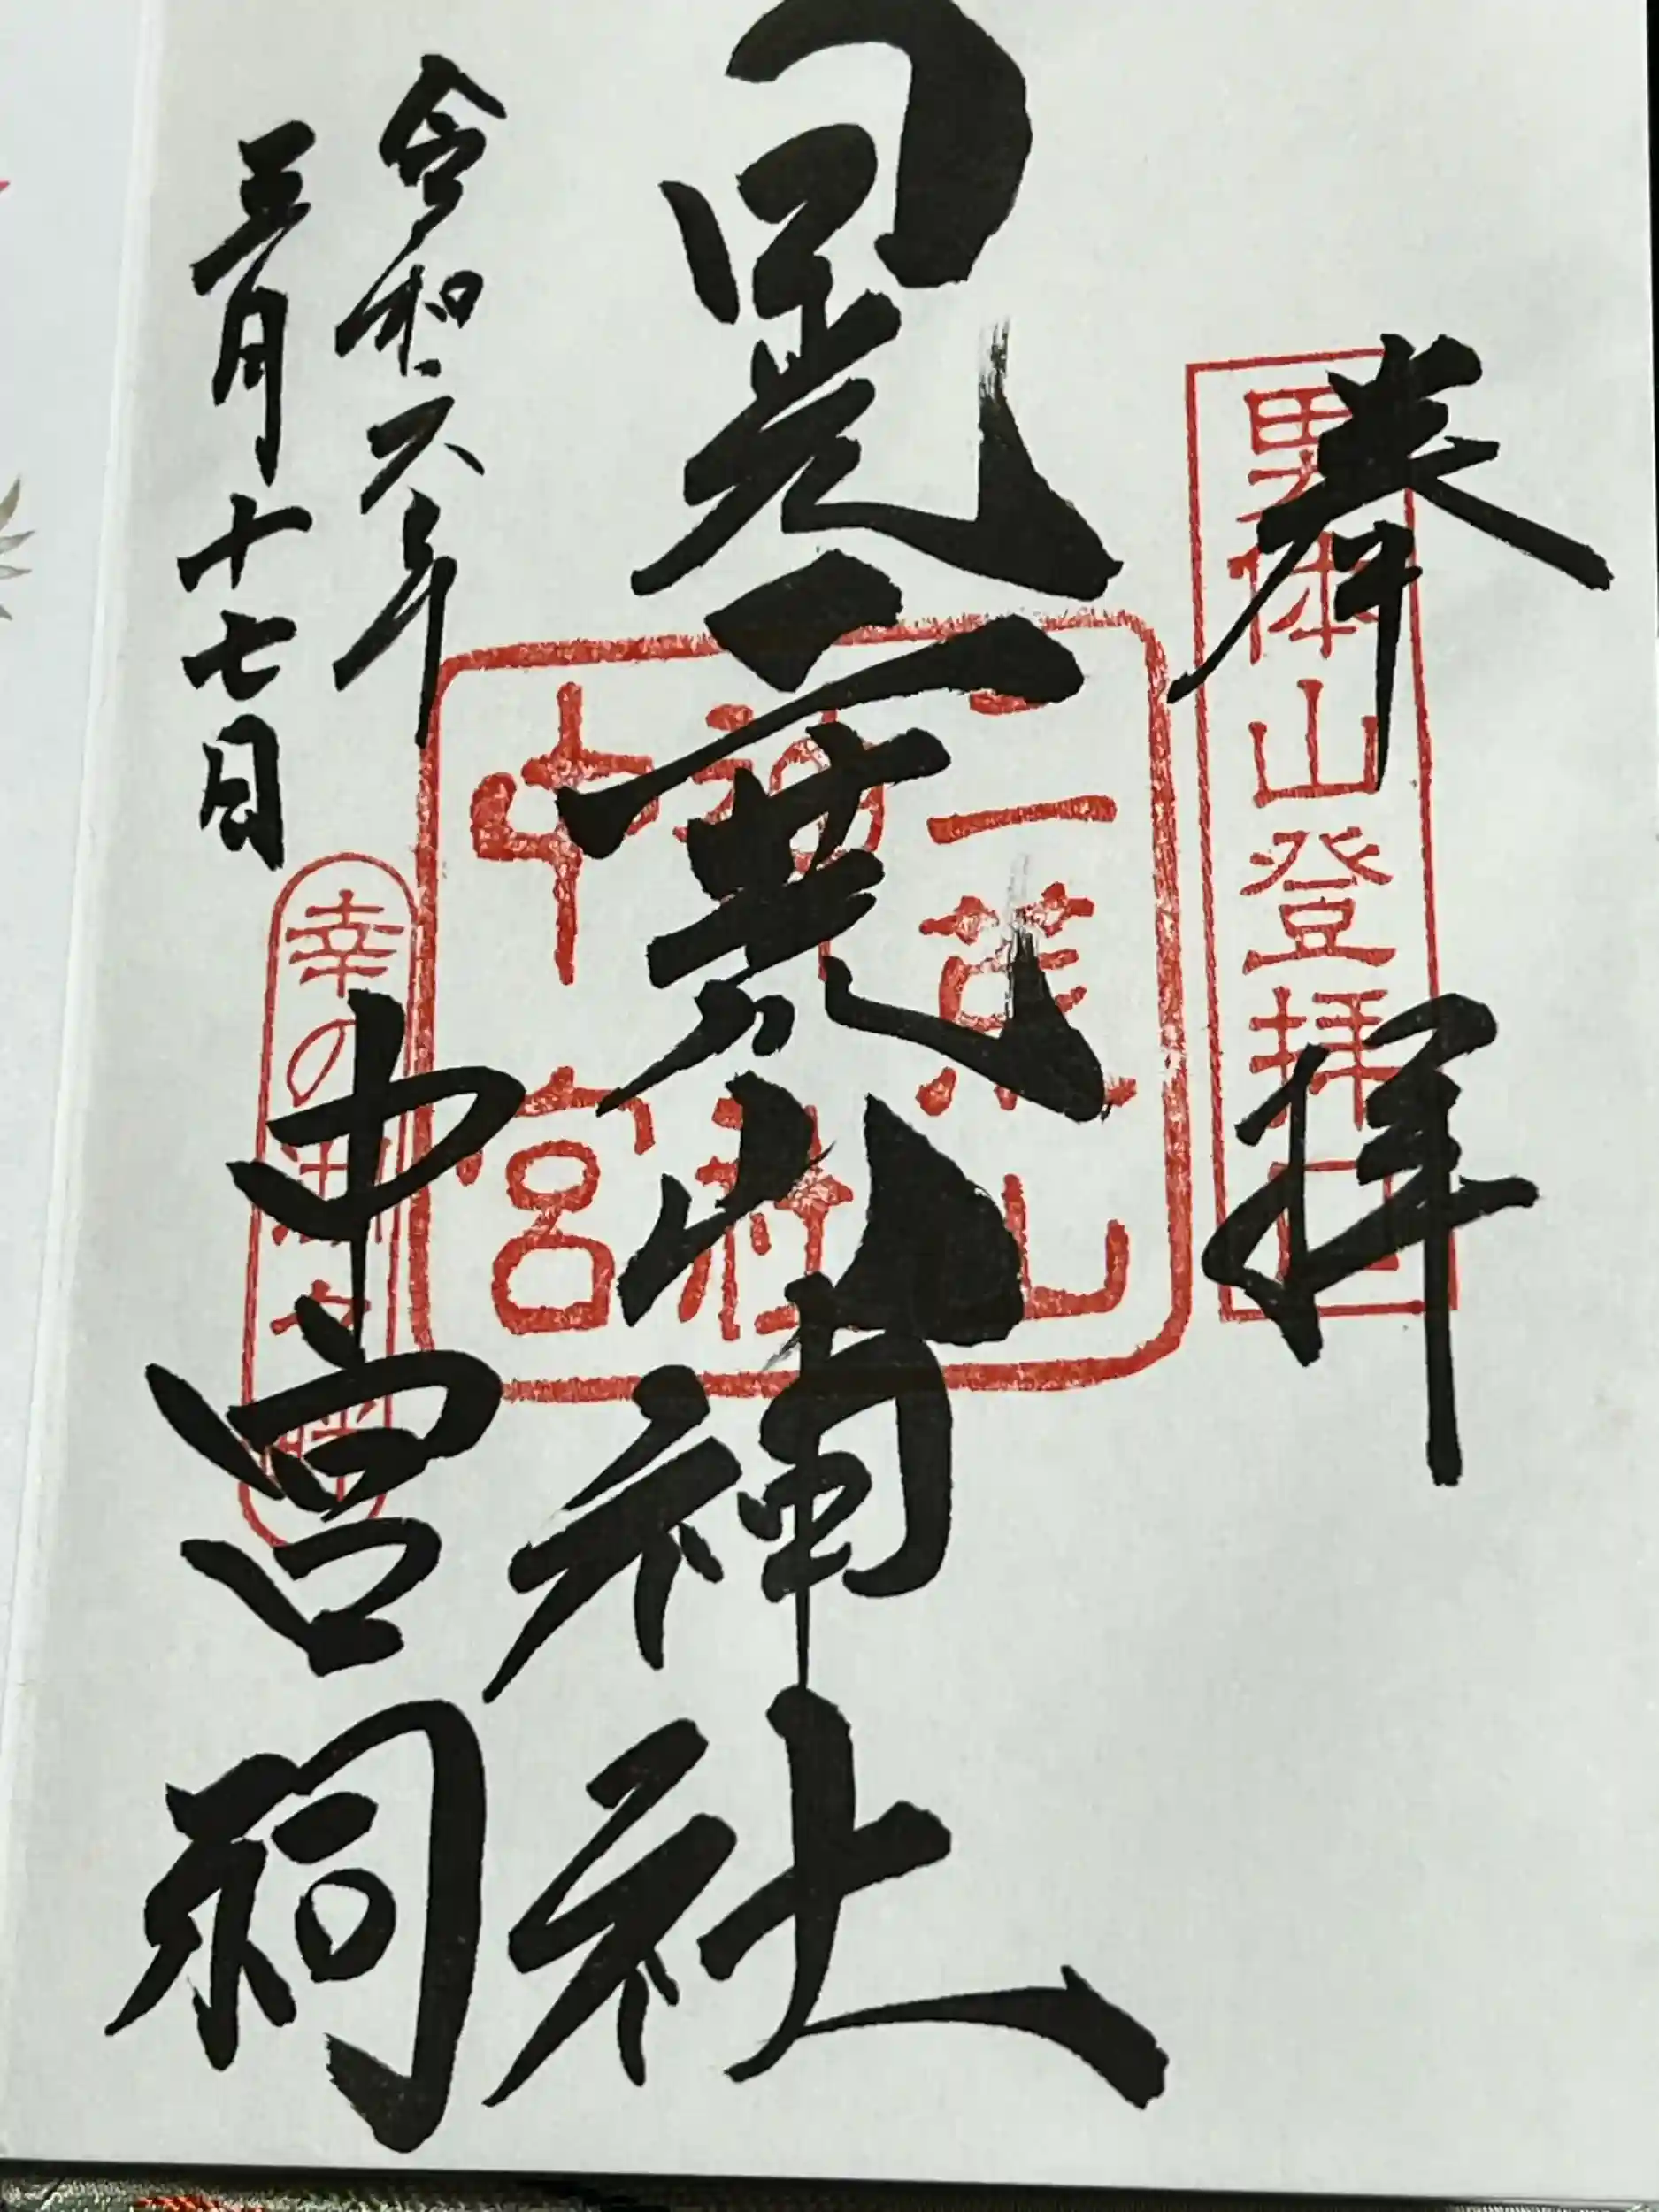 奉拝
男体山登拝口
日光二荒山神社
二荒山神社中宮
中宮祠
令和六年
三月十七日